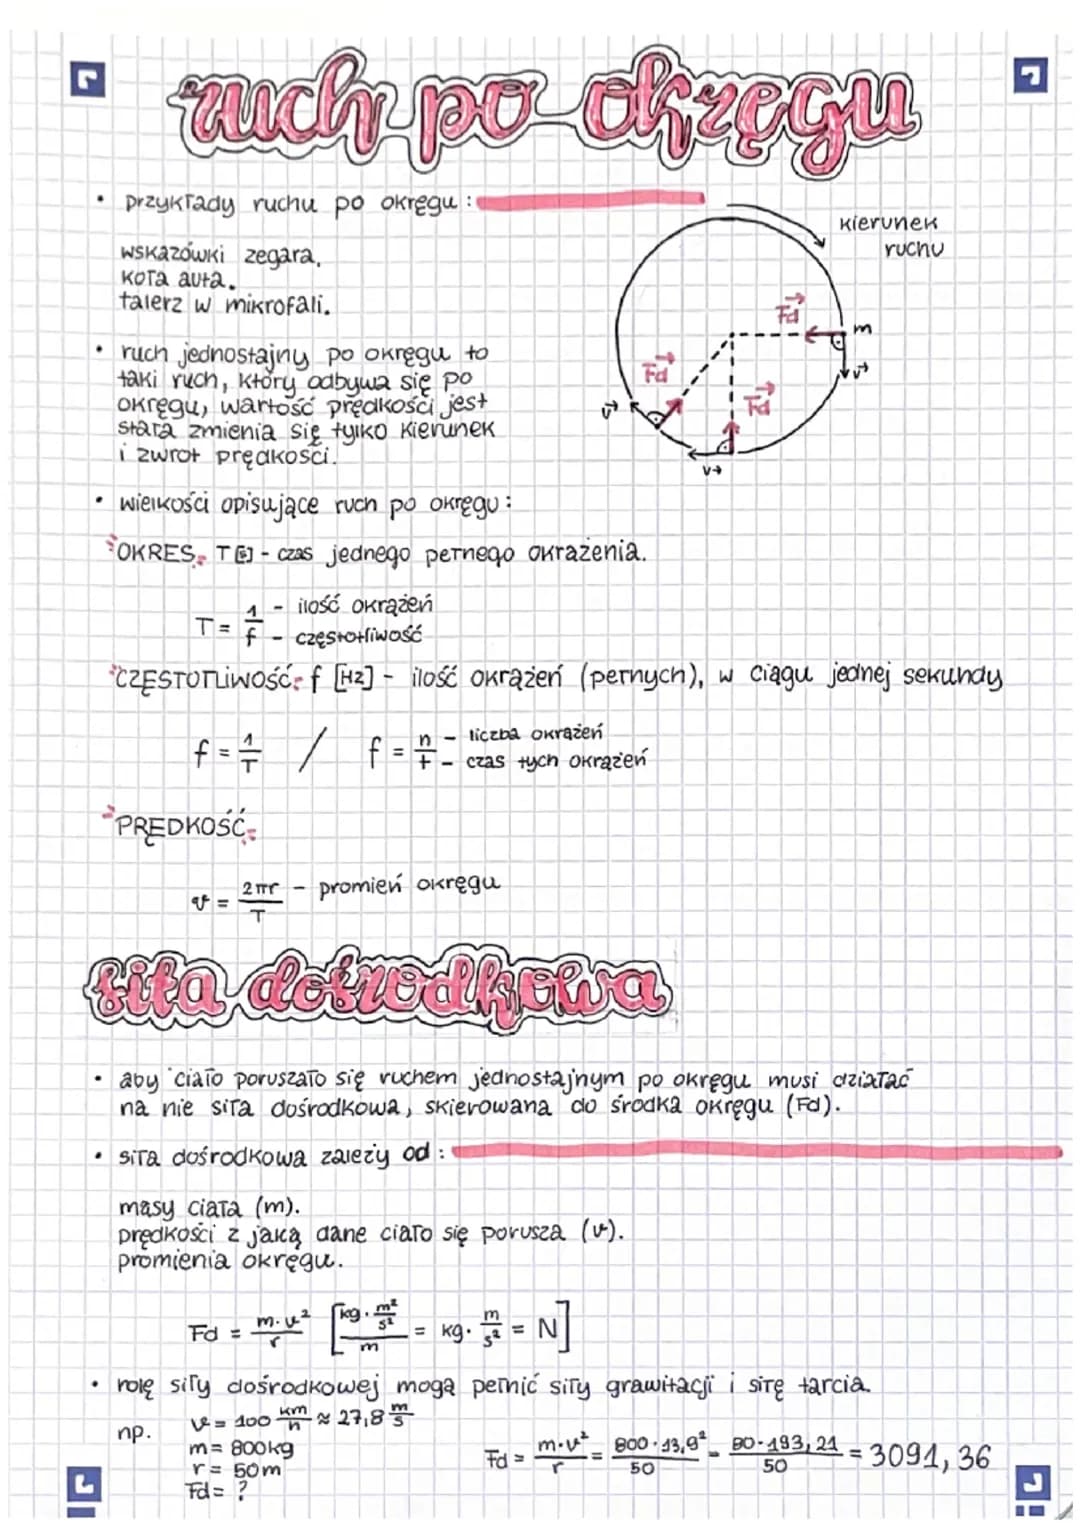 ruch po okręgu
• przykłady ruchu po okręgu :
wskazówki zegara,
koła auta.
talerz w mikrofali.
kierunek
ruchu
Fd
m
v
Fd
v
Fd
v
• ruch jednostajny po okręgu to
taki ruch, który odbywa się po
okręgu, wartość prędkości jest
stała zmienia się tylko kierunek
i zwrot prędkości.
• wielkości opisujące ruch po okręgu :
OKRES T [s] - czas jednego pełnego okrążenia.
T = 1/f - ilość okrążeń
- częstotliwość
CZĘSTOTLIWOŚĆ f [Hz] - ilość okrążeń (pełnych), w ciągu jednej sekundy
f = 1/T / f = n/t - liczba okrążeń
- czas tych okrążeń
PRĘDKOŚĆ
v = 2πr/T - promień okręgu
siła dośrodkowa
• aby ciało poruszało się ruchem jednostajnym po okręgu musi działać
na nie siła dośrodkowa, skierowana do środka okręgu (Fd).
• siła dośrodkowa zależy od :
masy ciała (m).
prędkości z jaką dane ciało się porusza (v).
promienia okręgu.
Fd = m·v²/r [kg·m²/s²/m = kg·m/s² = N]
• rolę siły dośrodkowej mogą pełnić siły grawitacji i siłę tarcia.
np. v = 100 km/h ≈ 27,8 m/s
m = 800kg
r = 50m
Fd = ?
Fd = m·v²/r = 800·13,9²/50 = 80·193,21/50 = 3091,36